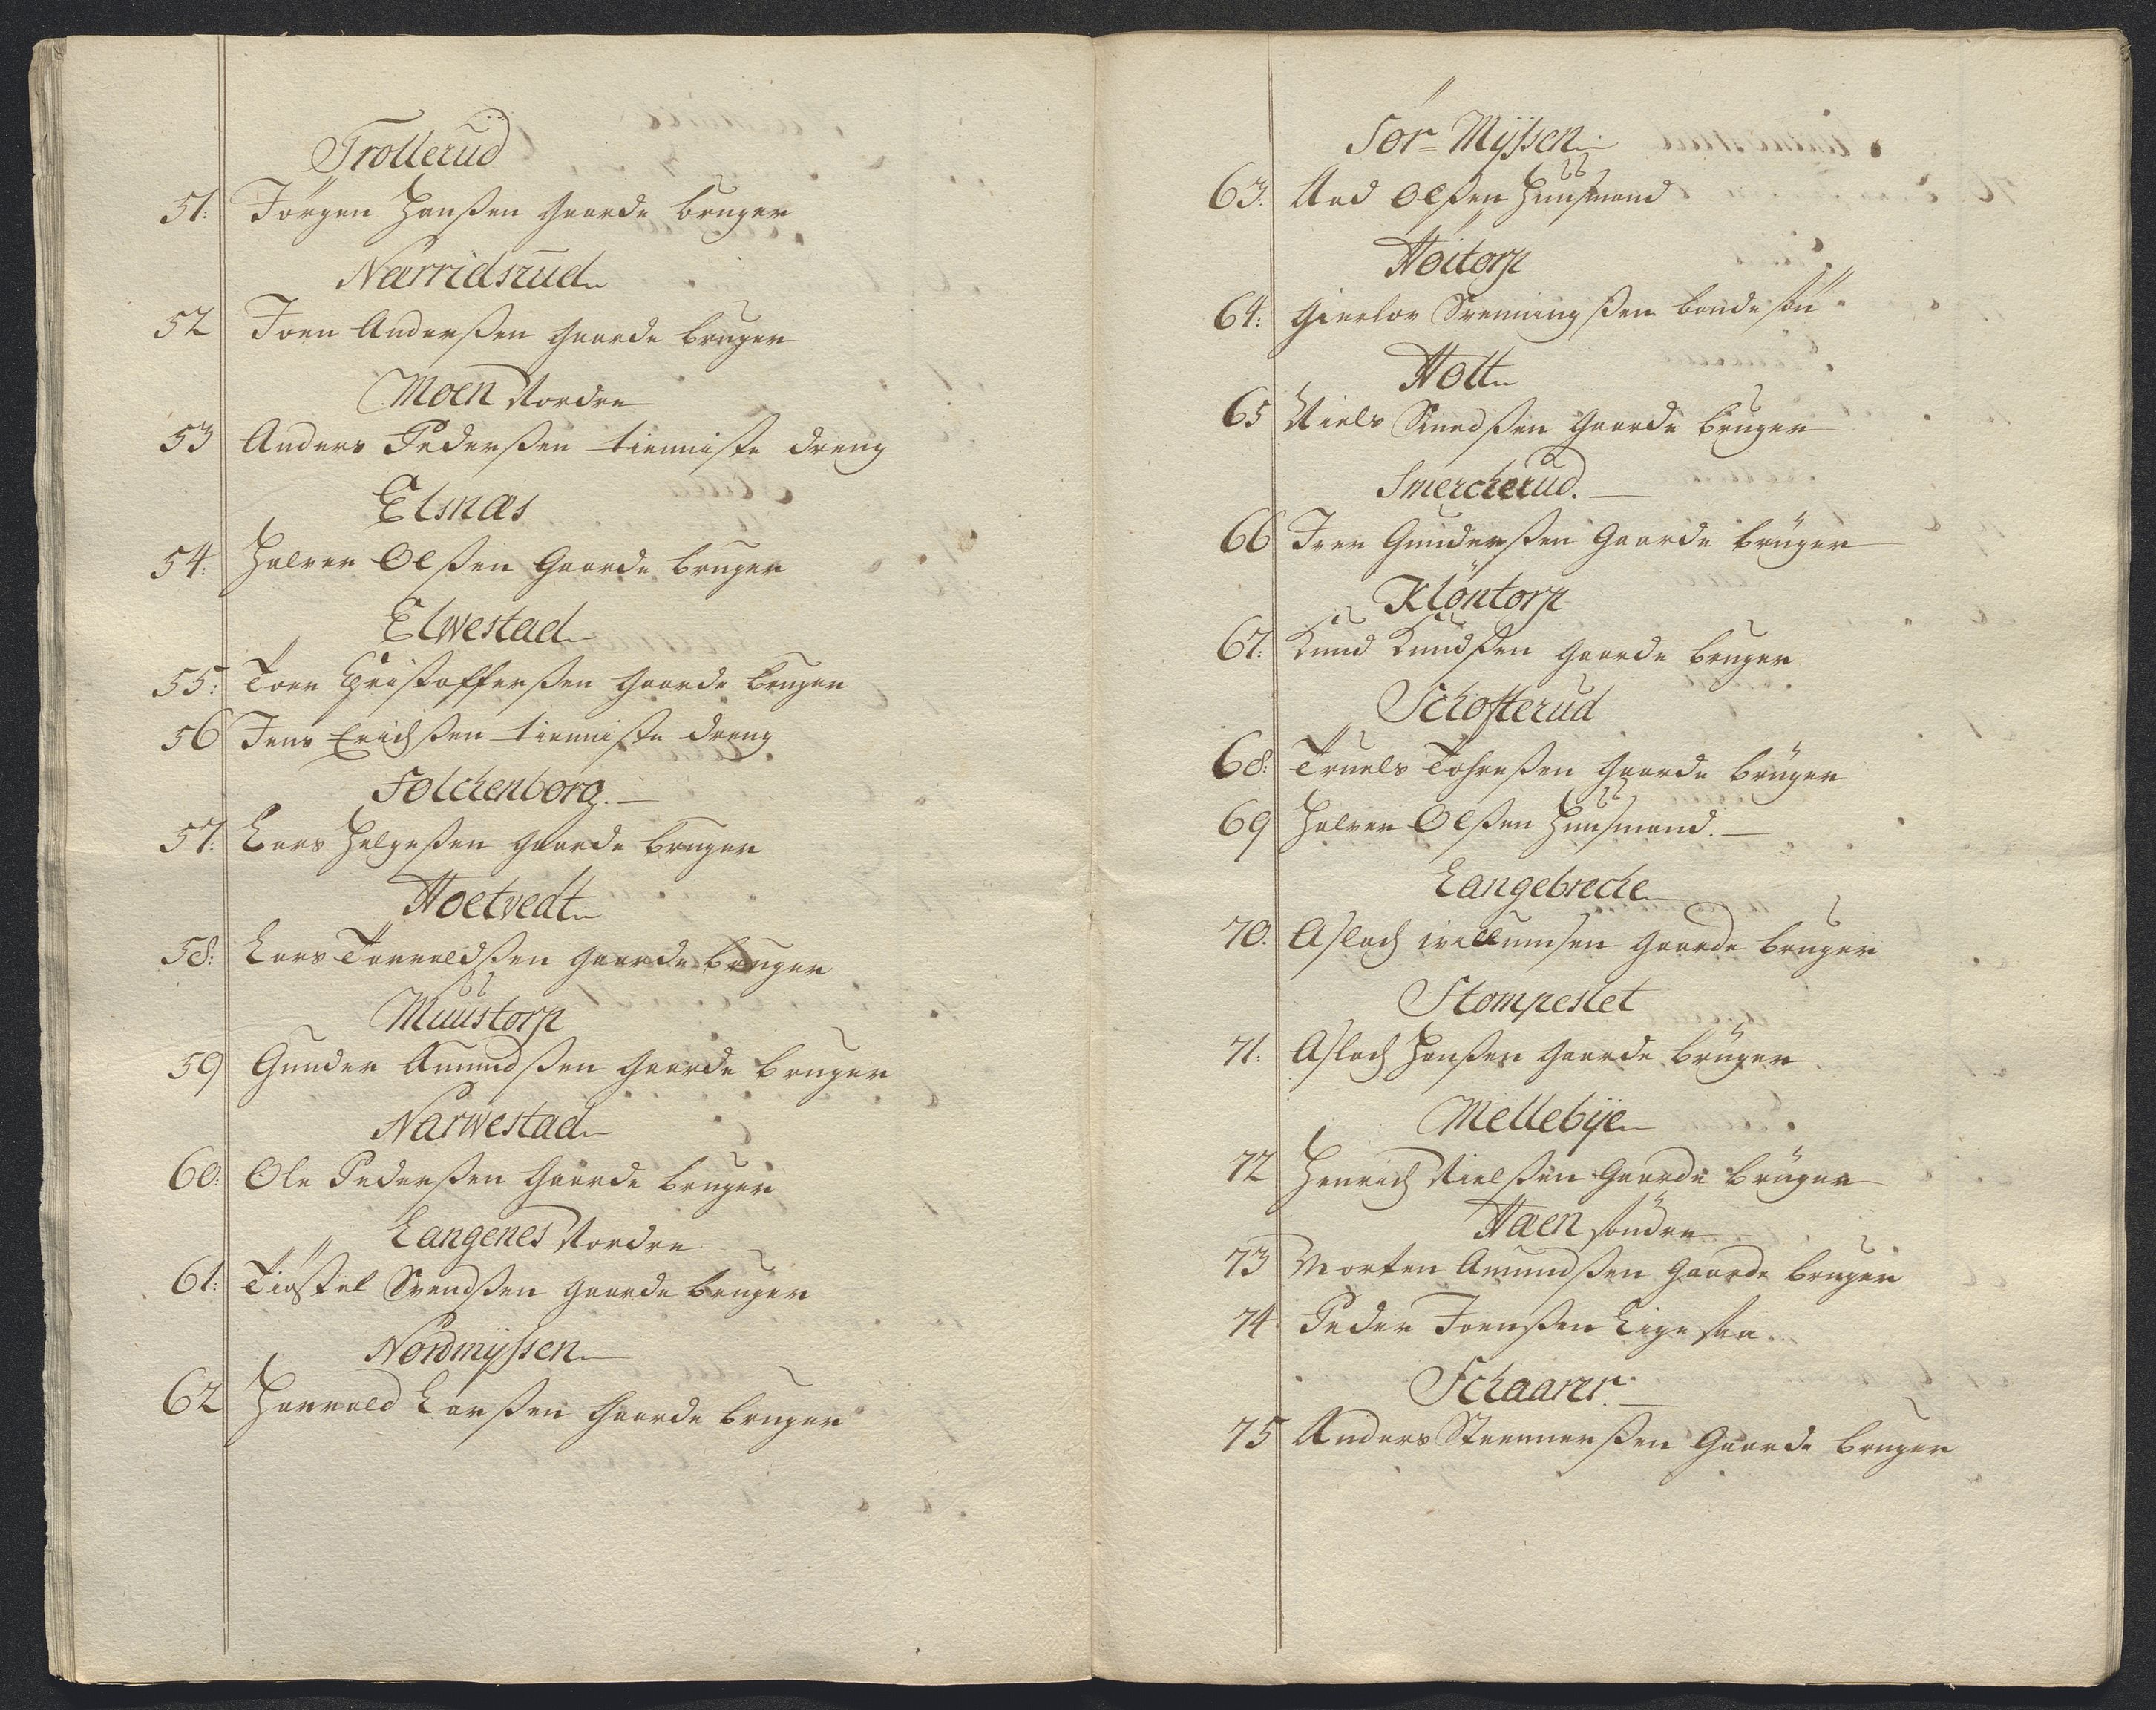 Trollerud
51: Jörgen Hanßen Gaarde bruger
Nærridsrud
52 Joen Anderßen Gaarde bruger
Moen Nordre
53 Anders Pederßen tienniste dreng
Elsnæs
54: Halvor Olßen Gaarde bruger
Elwestad
55: Tore Christofferßen Gaarde bruger
56 Jens Erichßen tienniste dreng
Folckenborg.
57: Lars Helgeßen Gaarde bruger
Hoetvedt
58: Lars Torvaldßen Gaarde bruger
Muustorp
59 Gunder Amundßen Gaarde bruger
Narwestad
60: Ole Pederßen Gaarde bruger
Langenes Nordre
61: Kiöstel Svendßen Gaarde bruger
Nordmÿssen
62 Harvald Larßen Gaarde bruger
Sör-Mÿssen
63: Aad Olßen Huusmand
Höitorp
64: Gierlov Svenningßen bonde sön
Holt
65 Niels Knudßen Gaarde bruger
Smerckerud.
66 Iver Gunderßen Gaarde brüger
Klöntorp
67: Knud Knudßen Gaarde bruger
Schofterud
68: Truels Tohreßen Gaarde brüger
69 Halvor Olßen Huusmand.
Langebrecke
70. Aslach willumsen Gaarde bruger
Stompeslet
71: Aslach Hanßen Gaarde brüger
Mellebÿe
72 Henrich Nielßen Gaarde brüger
Haen söndre
73 Morten Amundßen Gaarde bruger
74 Peder Joenßen Lige saa
Schaarer.
75 Anders Steenerßen Gaarde bruger